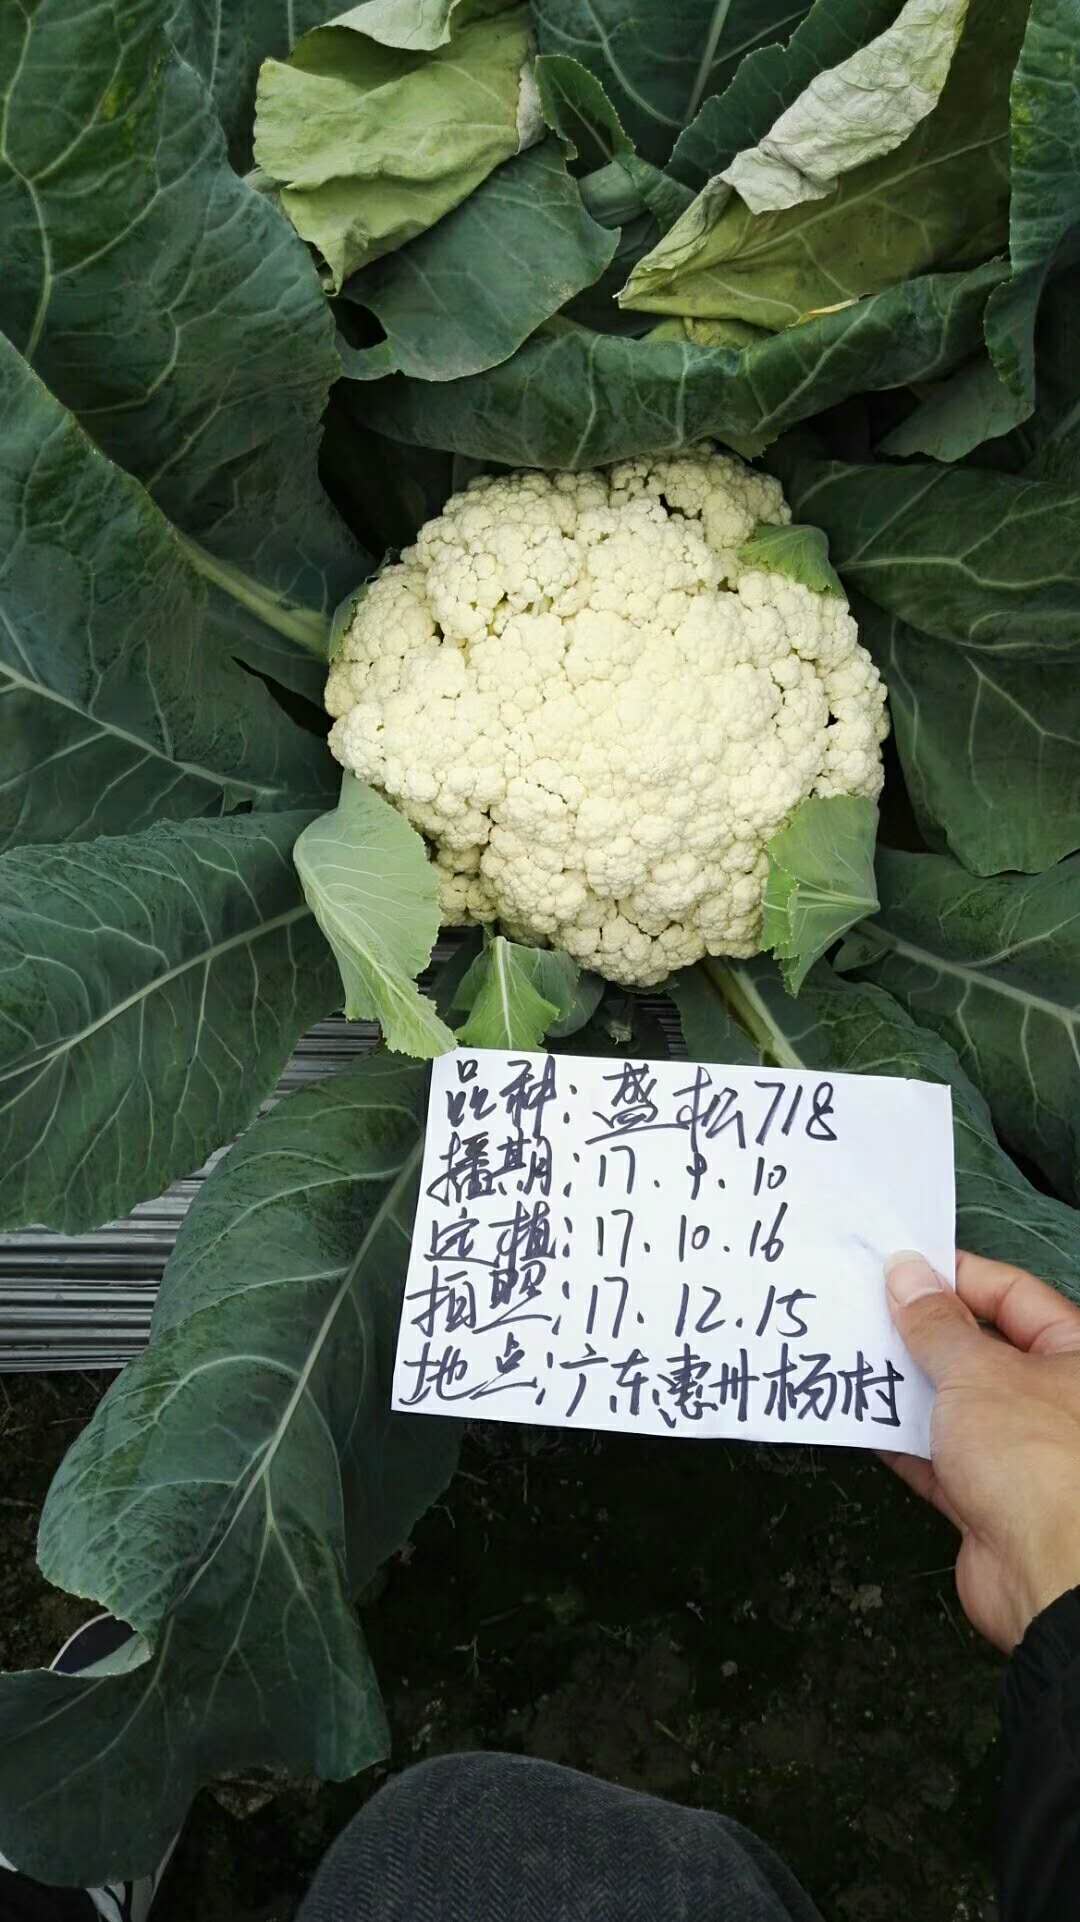 品种:盛松718
播期:17.9.10
定植:17.10.16
拍照:17.12.15
地点:广东惠州杨村